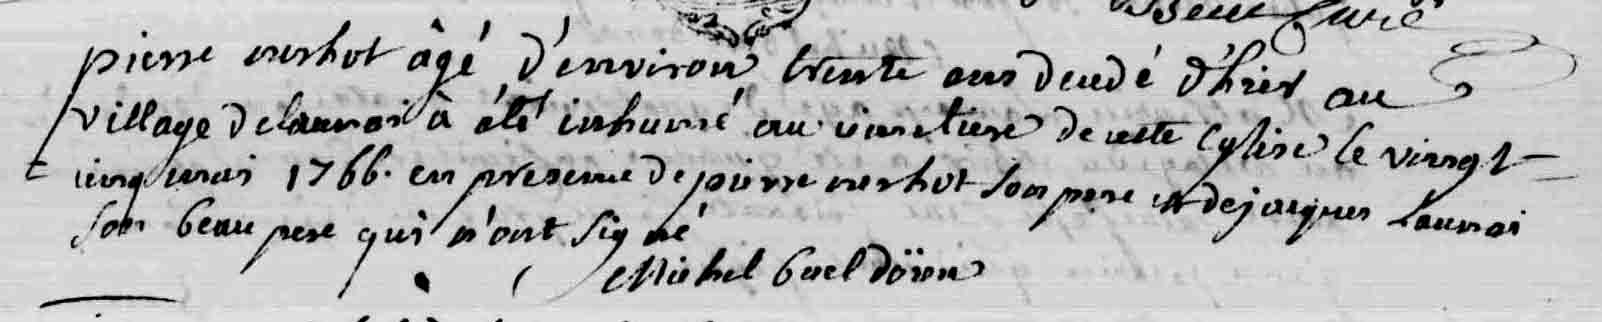 curé
pierre merhot âgé d'environ trente ans decedé d'hier au
village delaunai à été inhumé au cimetiere de cette Eglise le vingt-
cinq mai 1766. en presence de pierre merhot son pere et de jacques Launai
son beau pere qui n'ont signé
Michel Gael